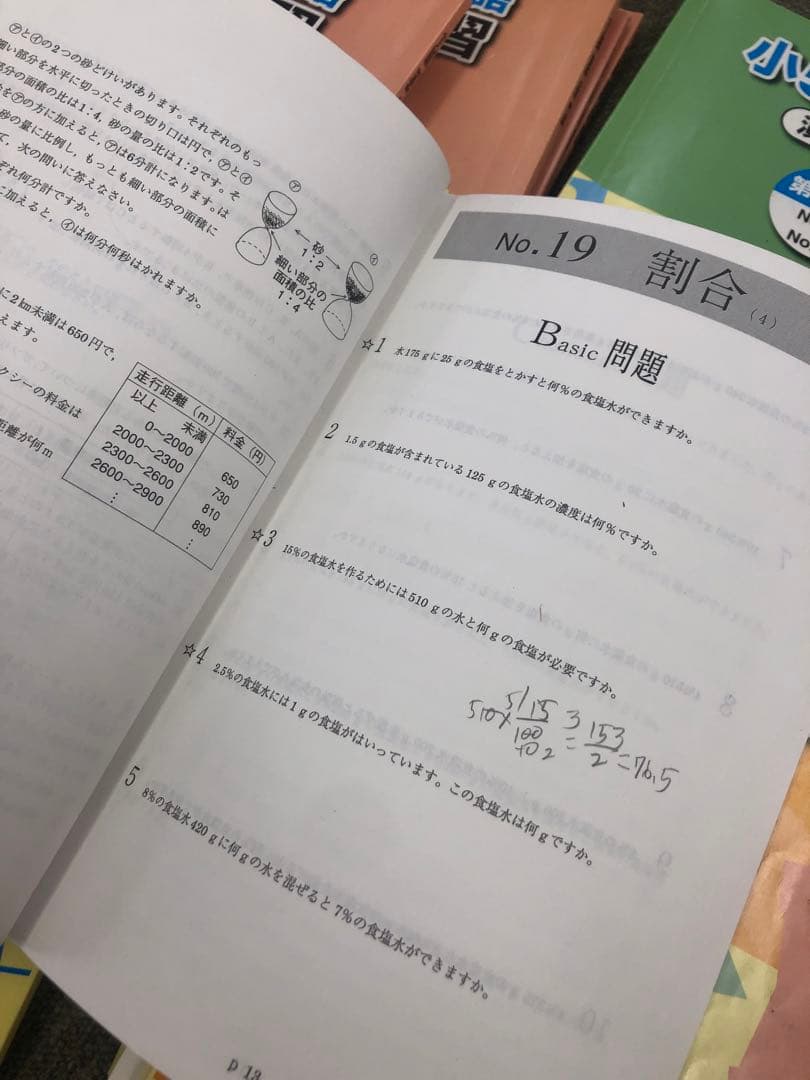 ㋐と㋑の2つの砂どけいがあります。それぞれのもっ
細い部分を水平に切ったときの切り口は円で、㋐と㋑
部分の面積の比は1：4，砂の量の比は1：2です。そ
を㋐の方に加えると，㋐は6分計になります。は
砂の量に比例し，もっとも細い部分の面積に
て，次の問いに答えなさい。
ぞれ何分計ですか。
に加えると，㋑は何分何秒はかれますか。
㋐
㋑
砂
1：2
細い部分の
面積の比
1：4
に2km未満は650円で，
えます。
クシーの料金は
距離が何m
走行距離（m） 料金（円）
以上 未満
0～2000 650
2000～2300 730
2300～2600 810
2600～2900 890
⋮ ⋮
No.19 割合（4）
Basic 問題
☆1 水175gに25gの食塩をとかすと何%の食塩水ができますか。
2 1.5gの食塩が含まれている125gの食塩水の濃度は何%ですか。
☆3 15%の食塩水を作るためには510gの水と何gの食塩が必要ですか。
☆4 2.5%の食塩水には1gの食塩がはいっています。この食塩水は何gですか。
5 8%の食塩水420gに何gの水を混ぜると7%の食塩水ができますか。
習
小
第